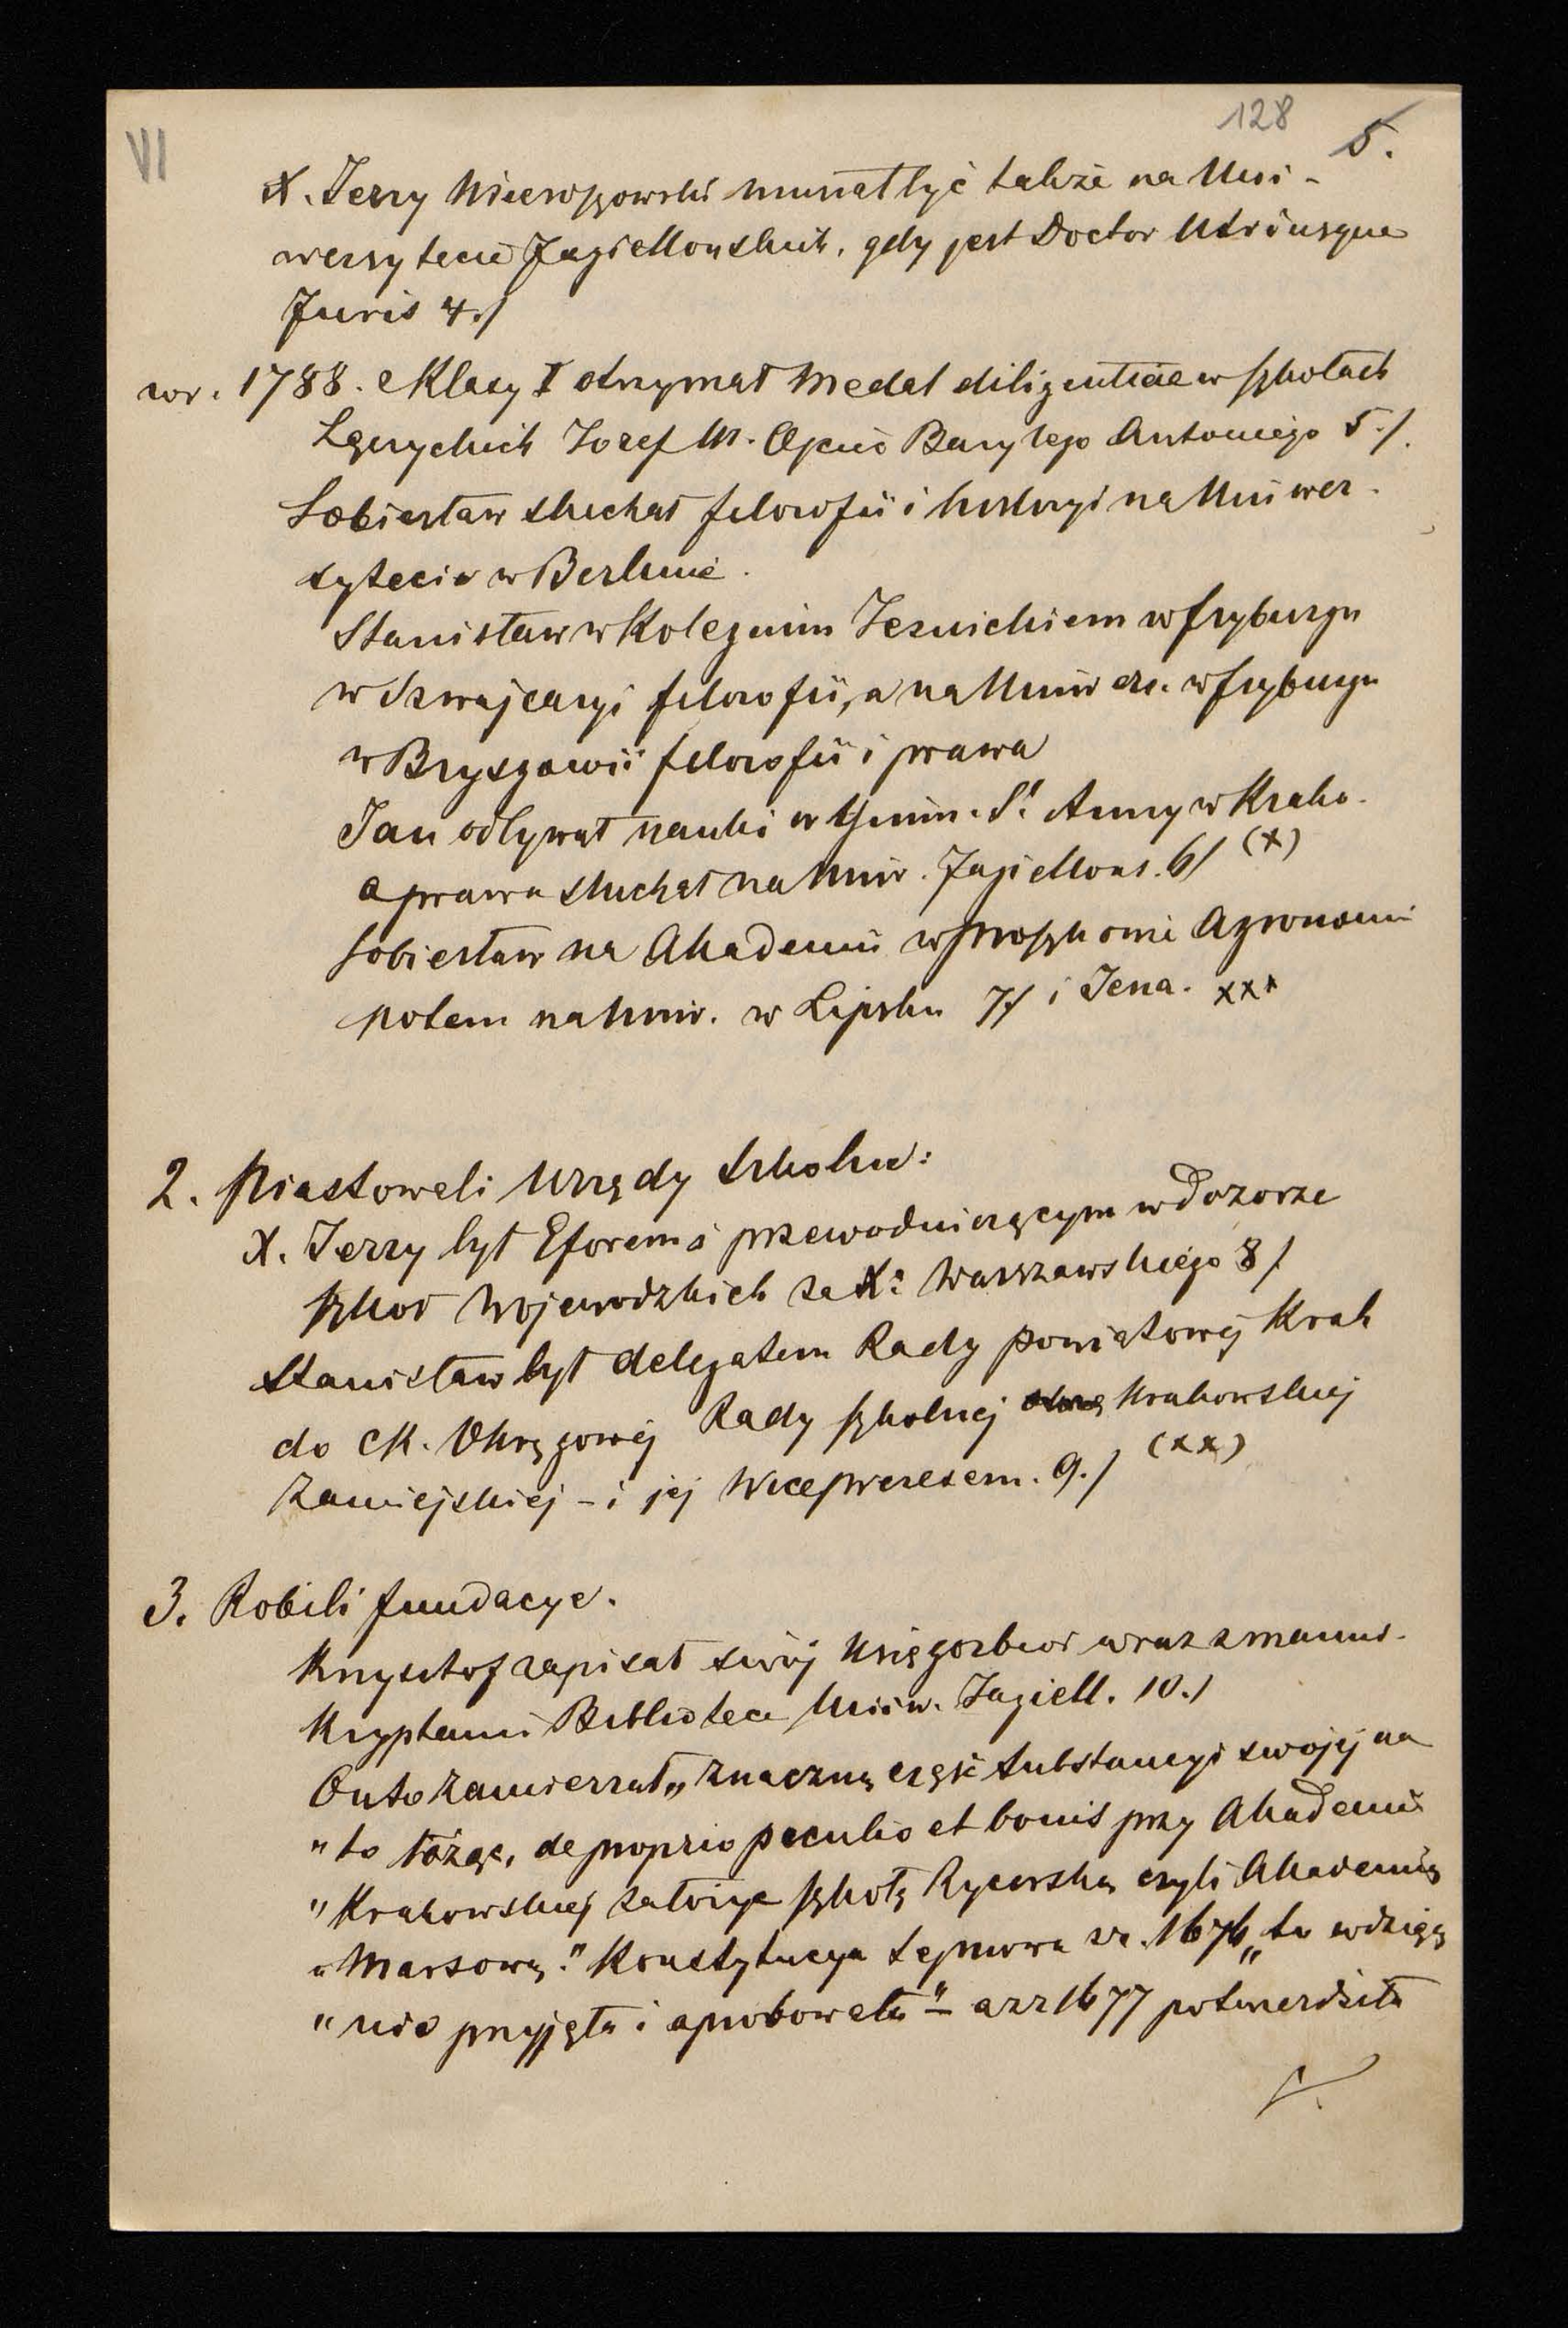 VI
128
5.
X. Jerzy Mieroszowski musiał być także na Uni-
wersytecie Jagiellonskih, gdy jest Doctor Utriusque
Juris 4./
w r. 1788. e Klasy I otrzymał Medal diligentiae w szkołach
Łęczyckich Jozef M. Opcio Antoniego 5./.
Sobiesław słuchał filozofii i historyi na Uniwer-
sytecie w Berlinie.
Stanisław w Kolegium Jezuickiem w Fryburgu
w Szwajcaryi filozofii, a na Uniwers. w Fryburgu
w Bryzgowii filozofii i prawa
Jan odbywał nauki w Gimn. Sᵗ Anny w Krako.
a prawa słuchał na Univ. Jagiellons. 6/ (x)
Sobiesław na Akademii w Proszkowie Agronomi
potem na Univ. w Lipsku 7/ i Jena. xxx
2. Piastowali Urzędy szkolne:
X. Jerzy był Eforem i przewodniczącym w Dozorze
szkoł Wojewodzkich za X: Warszawskiego 8/
Stanisław był delegatem Rady powiatowej Krak
do CK. Okręgowej Rady szkolnej Krakowskiej
Zamiejskiej - i jej Wiceprezesem. 9./ (xx)
3. Robili fundacye.
Krzysztof zapisał swój księgozbior wraz z manus-
kryptami Bibliotece Univ. Jagiell. 10./
On to zamierzał „znaczną część substancyi swojej na
"to łożąc, de proprio peculio et bonis przy Akademii
"Krakowskiej założyć szkołę Rycerską czyli Akademię
"Marsową." Konstytucya sejmowa z r. 1676 „to wdzięcz
"nie przyjęła i aprobowała" - a z r 1677 potwierdziła